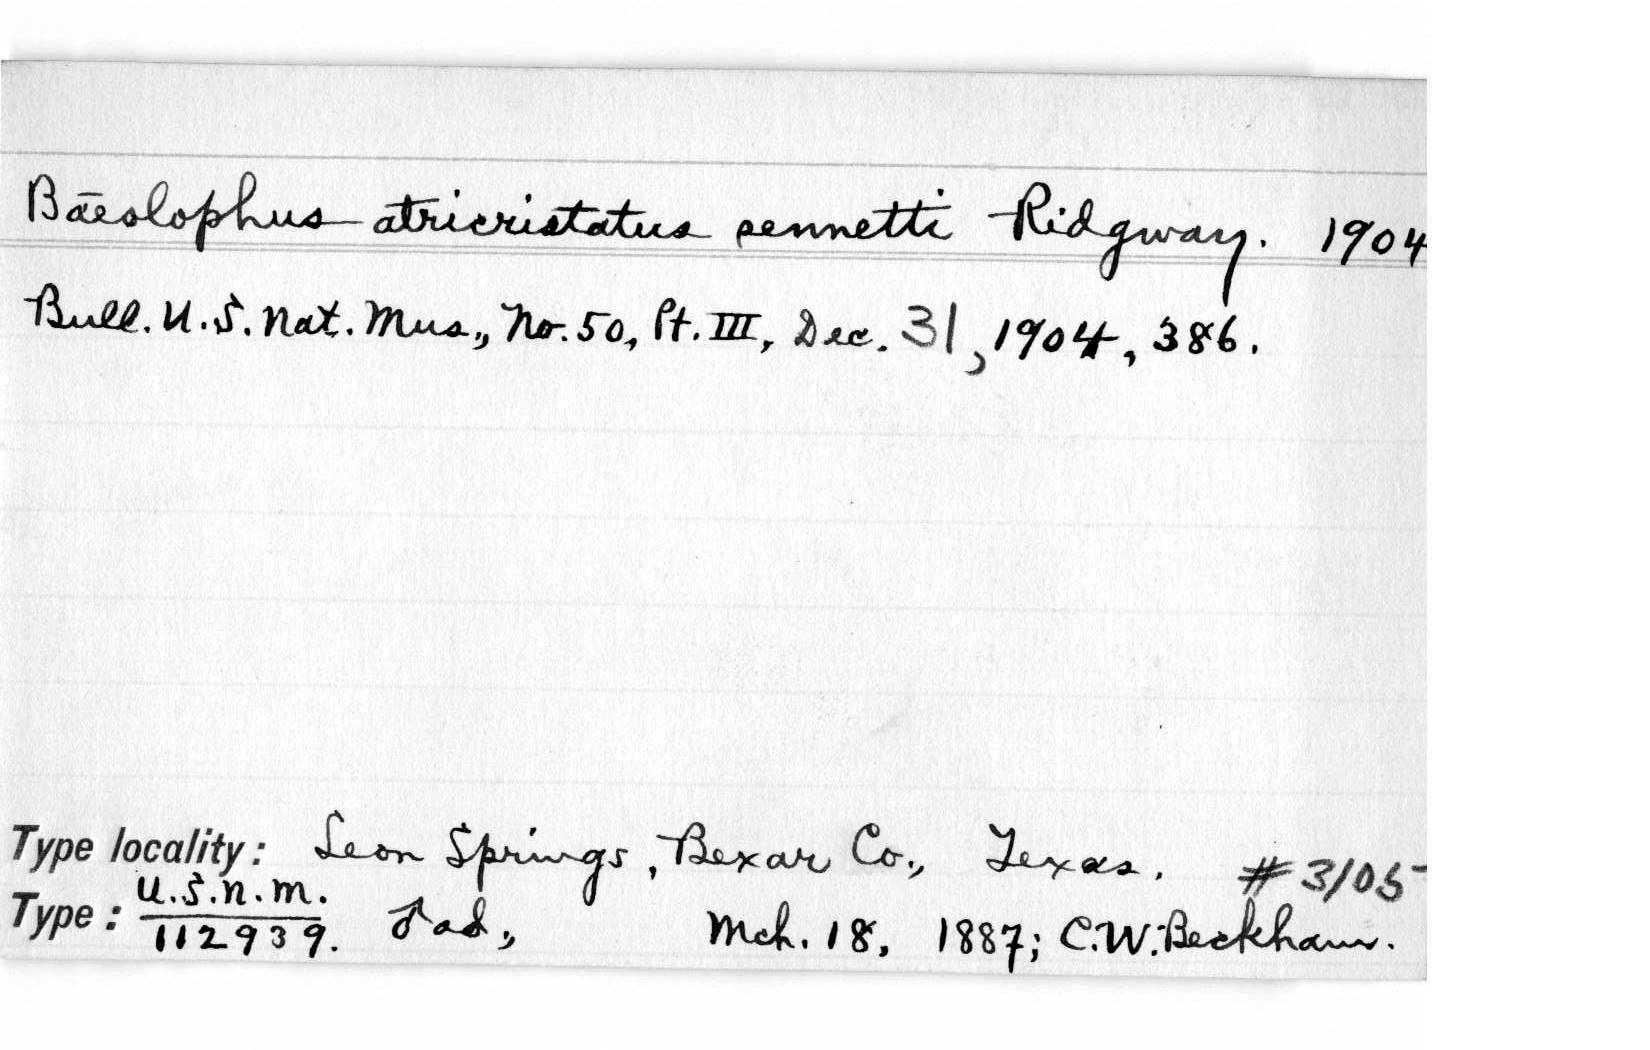 Bāeolophus atricristatus sennetti Ridgway. 1904
Bull. U.S. Nat. Mus., No. 50, Pt. III, Dec. 31, 1904, 386.
Type locality: Leon Springs, Bexar Co., Texas. # 3105
Type: U.S.N.M. 112939. ♂ ad., Mch. 18, 1887; C.W. Beckham.